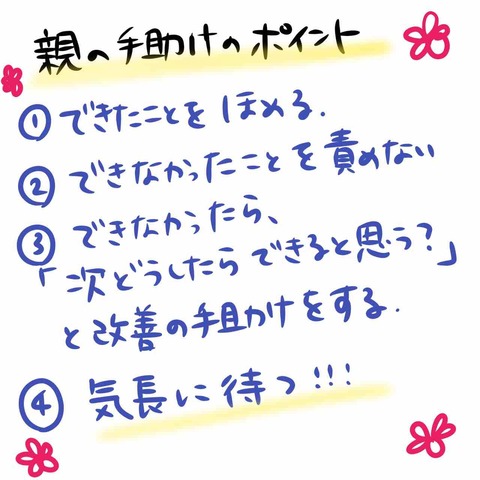 親の手助けのポイント
①できたことをほめる.
②できなかったことを責めない
③できなかったら、
「次どうしたらできると思う?」
と改善の手助けをする.
④気長に待つ!!!